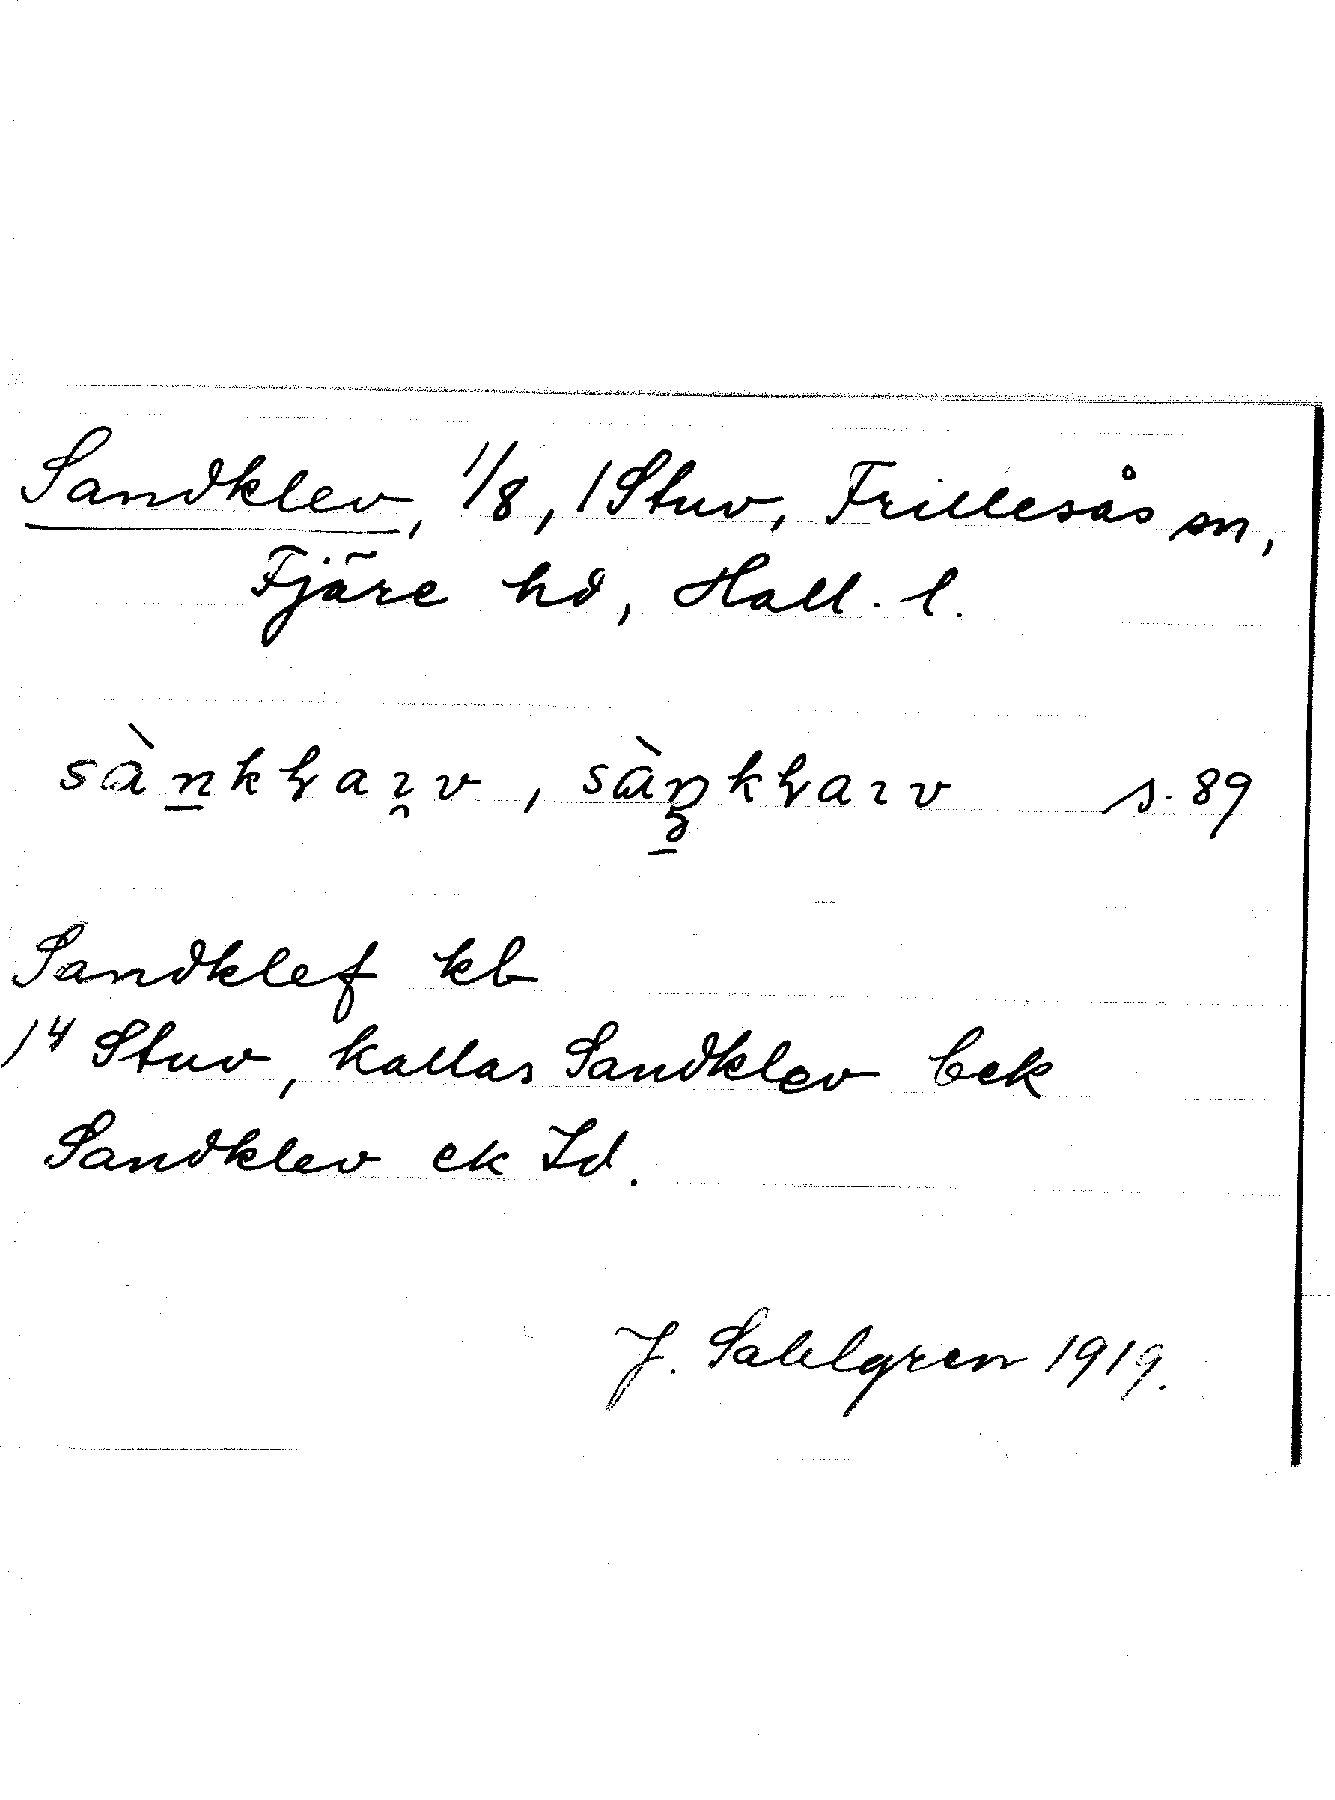 Sandklev, 1/8, 1 Stuv, Frillesås sn,
Fjäre hd, Hall. l.
s. 89
Sandklef kb
1⁴ Stuv, kallas Sandklev bek
Sandklev ek Id.
J. Sahlgren 1919.